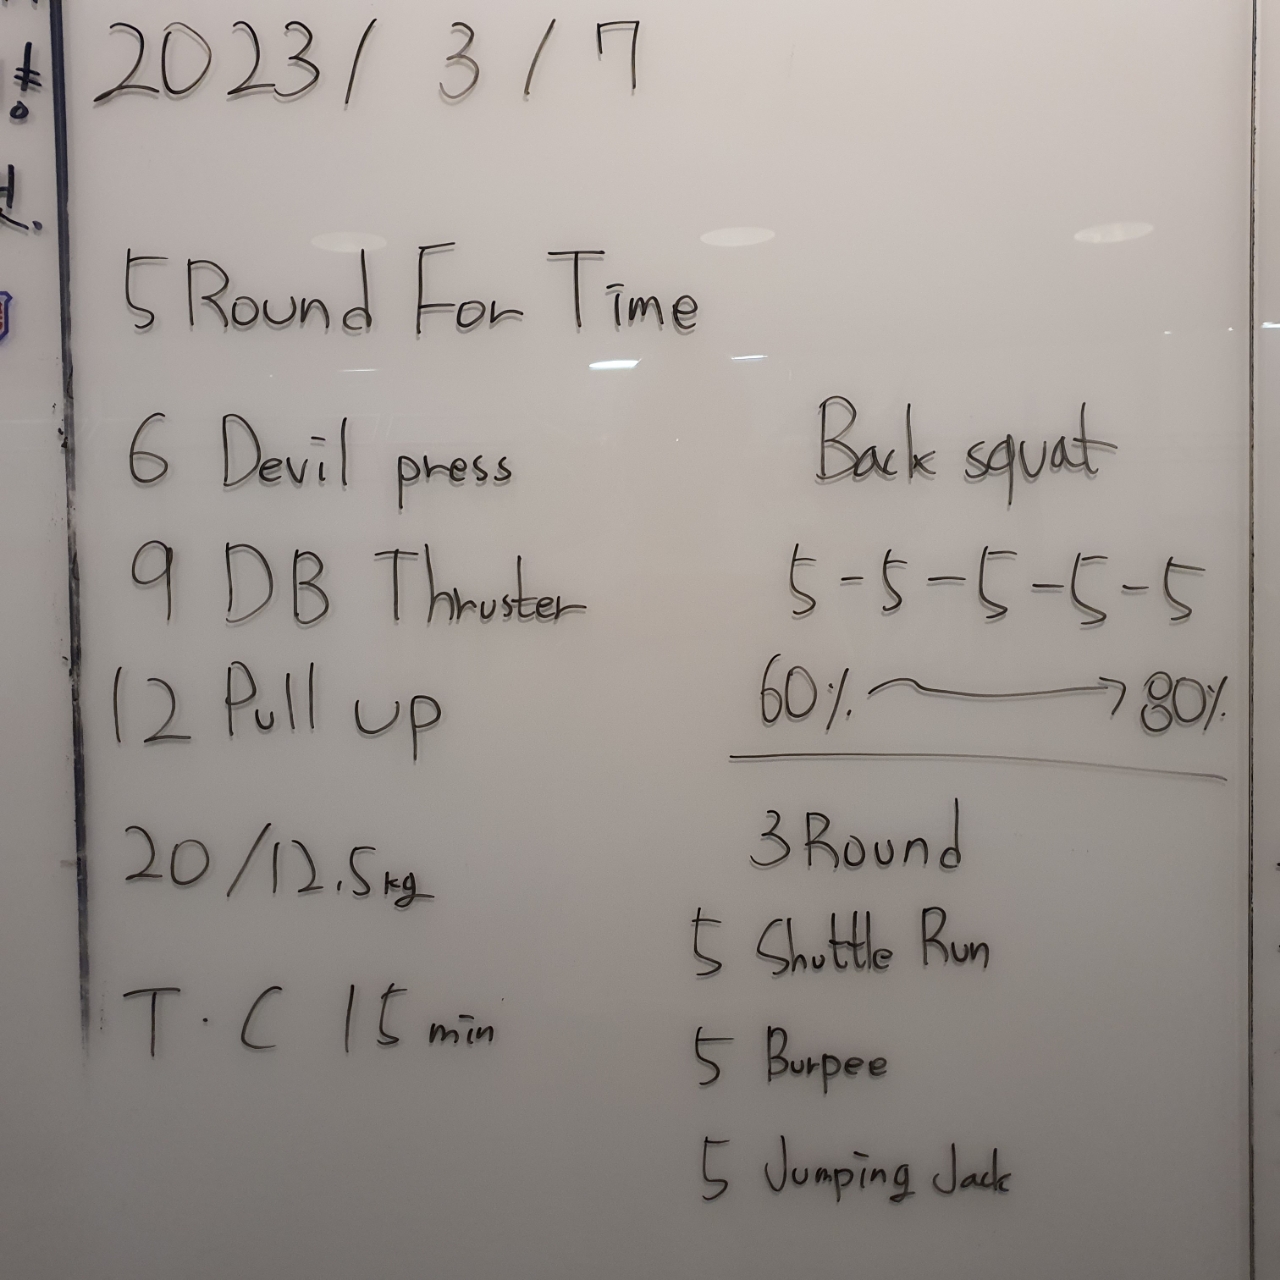 2023/ 3 / 7
5 Round For Time
6 Devil press
9 DB Thruster
12 Pull up
20/12.5kg
T.C 15 min
Back squat
5-5-5-5-5
60% → 80%
3 Round
5 Shuttle Run
5 Burpee
5 Jumping Jack